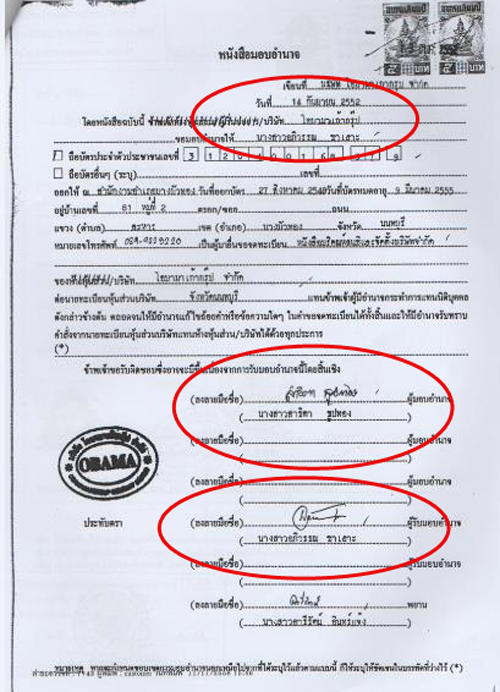 หนังสือมอบอำนาจ
เขียนที่ บริษัท โอบามาเก้ากรุ๊ป จำกัด
วันที่ 14 กันยายน 2552
โดยหนังสือฉบับนี้ บริษัท โอบามาเก้ากรุ๊ป
ขอมอบอำนาจให้ นางสาวอภิวรรณ
ถือบัตรประจำตัวประชาชนเลขที่
ถือบัตรอื่นๆ (ระบุ) เลขที่
ออกให้ ณ สำนักงานอำเภอบางบัวทอง วันที่ออกบัตร 27 สิงหาคม 2549 วันที่บัตรหมดอายุ 9 มีนาคม 2555
อยู่บ้านเลขที่ 61 หมู่ที่ 2 ตรอก/ซอย ถนน
แขวง (ตำบล) ละหาร เขต (อำเภอ) บางบัวทอง จังหวัด นนทบุรี
หมายเลขโทรศัพท์ เป็นผู้ยื่นขอจดทะเบียน หนังสือบริคณห์สนธิและจัดตั้งบริษัทจำกัด
ของ บริษัท โอบามาเก้ากรุ๊ป จำกัด
ต่อนายทะเบียนหุ้นส่วนบริษัท จังหวัดนนทบุรี แทนข้าพเจ้าผู้มีอำนาจกระทำการแทนนิติบุคคล
ดังกล่าวข้างต้น ตลอดจนให้มีอำนาจแก้ไขถ้อยคำหรือข้อความใดๆ ในคำขอจดทะเบียนได้ทั้งสิ้นและให้มีอำนาจรับทราบ
คำสั่งจากนายทะเบียนหุ้นส่วนบริษัทแทนห้างหุ้นส่วน/บริษัทได้ด้วยทุกประการ
(*)
ข้าพเจ้าขอรับผิดชอบซึ่งอาจจะมีขึ้นเนื่องจากการรับมอบอำนาจนี้โดยสิ้นเชิง
(ลงลายมือชื่อ) ผู้มอบอำนาจ
( นางสาวสาริศา รูปทอง )
(ลงลายมือชื่อ) ผู้มอบอำนาจ
( )
(ลงลายมือชื่อ) ผู้มอบอำนาจ
( )
OBAMA
ประทับตรา
(ลงลายมือชื่อ) ผู้รับมอบอำนาจ
( นางสาวอภิวรรณ )
(ลงลายมือชื่อ) ผู้รับมอบอำนาจ
( )
(ลงลายมือชื่อ) พยาน
( นางสาวอารีรัตน์ อินทร์แจ้ง )
หมายเหตุ หากจะกำหนดขอบเขตการมอบอำนาจนอกเหนือไปจากที่ได้ระบุไว้แล้วตามแบบนี้ ก็ให้ระบุให้ชัดเจนในบรรทัดที่ว่างไว้ (*)